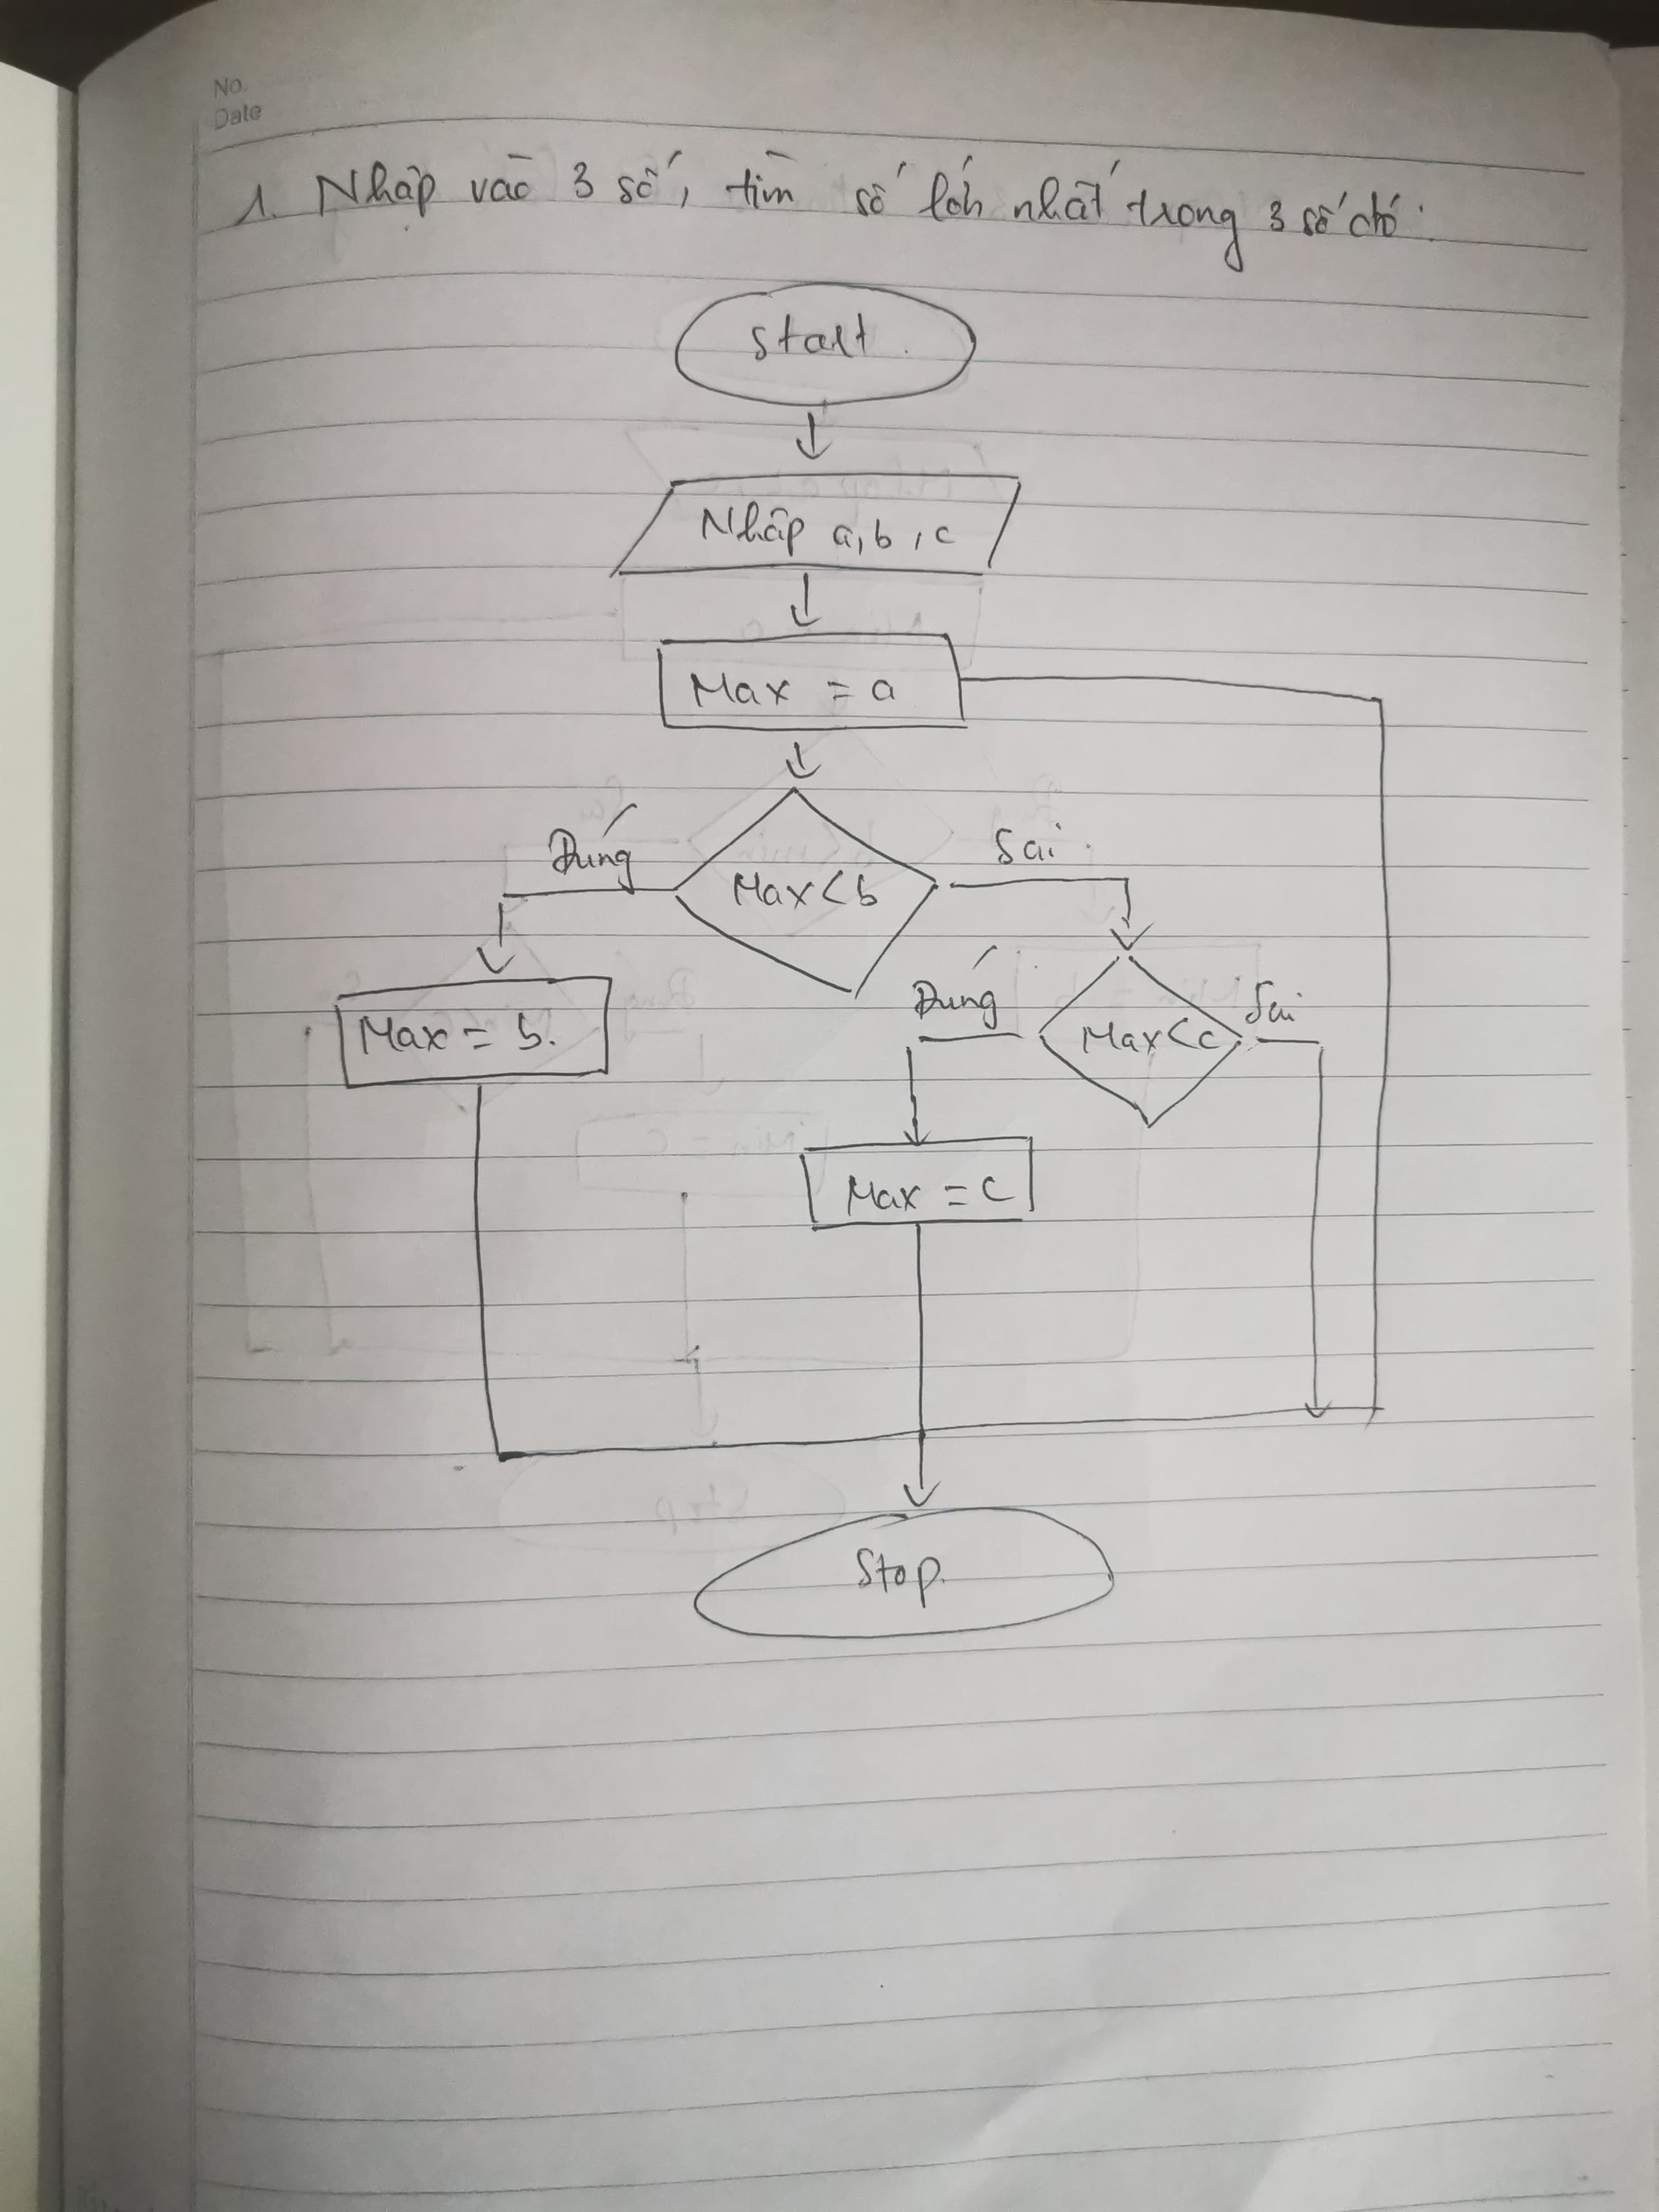 No.
Date
1. Nhập vào 3 số, tìm số lớn nhất trong 3 số đó.
Start.
Nhập a, b, c
Max = a
Đúng
Sai
Max < b
Đúng
Sai
Max = b.
Max < c
Max = c
Stop.